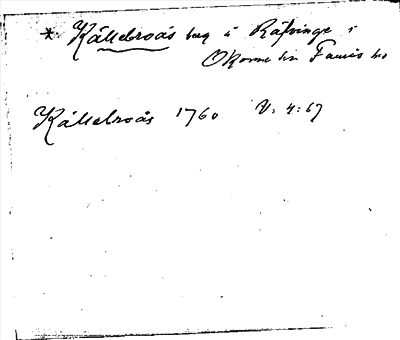 * Källebroås berg å Räfvinge i
Okome sn Faurås hd
Källebroås 1760 V: 4:67